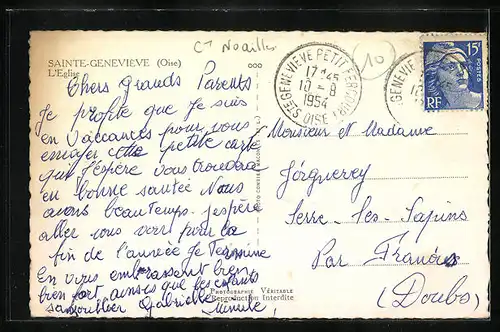 Cⁿ Noailles
SAINTE-GENEVIÈVE (Oise)
L'Eglise
Chers Grands Parents
Je profite que je suis
en vacances pour vous
envoyer cette petite carte
qui j'espère vous trouvera
en bonne santée Nous
avons beau temps. j'espère
aller vous voir pour la
fin de l'année je termine
En vous embrassant bien
bien fort, ainsi que les enfants
sans oublier Gabrielle
STE GENEVIEVE PETIT
17-45
10-8
1954
OISE
10
GENEVIEVE
15F
RF
Monsieur et Madame
Serre-les-Sapins
Par Franois
(Doubs)
PHOTOGRAPHIE VÉRITABLE
Reproduction Interdite